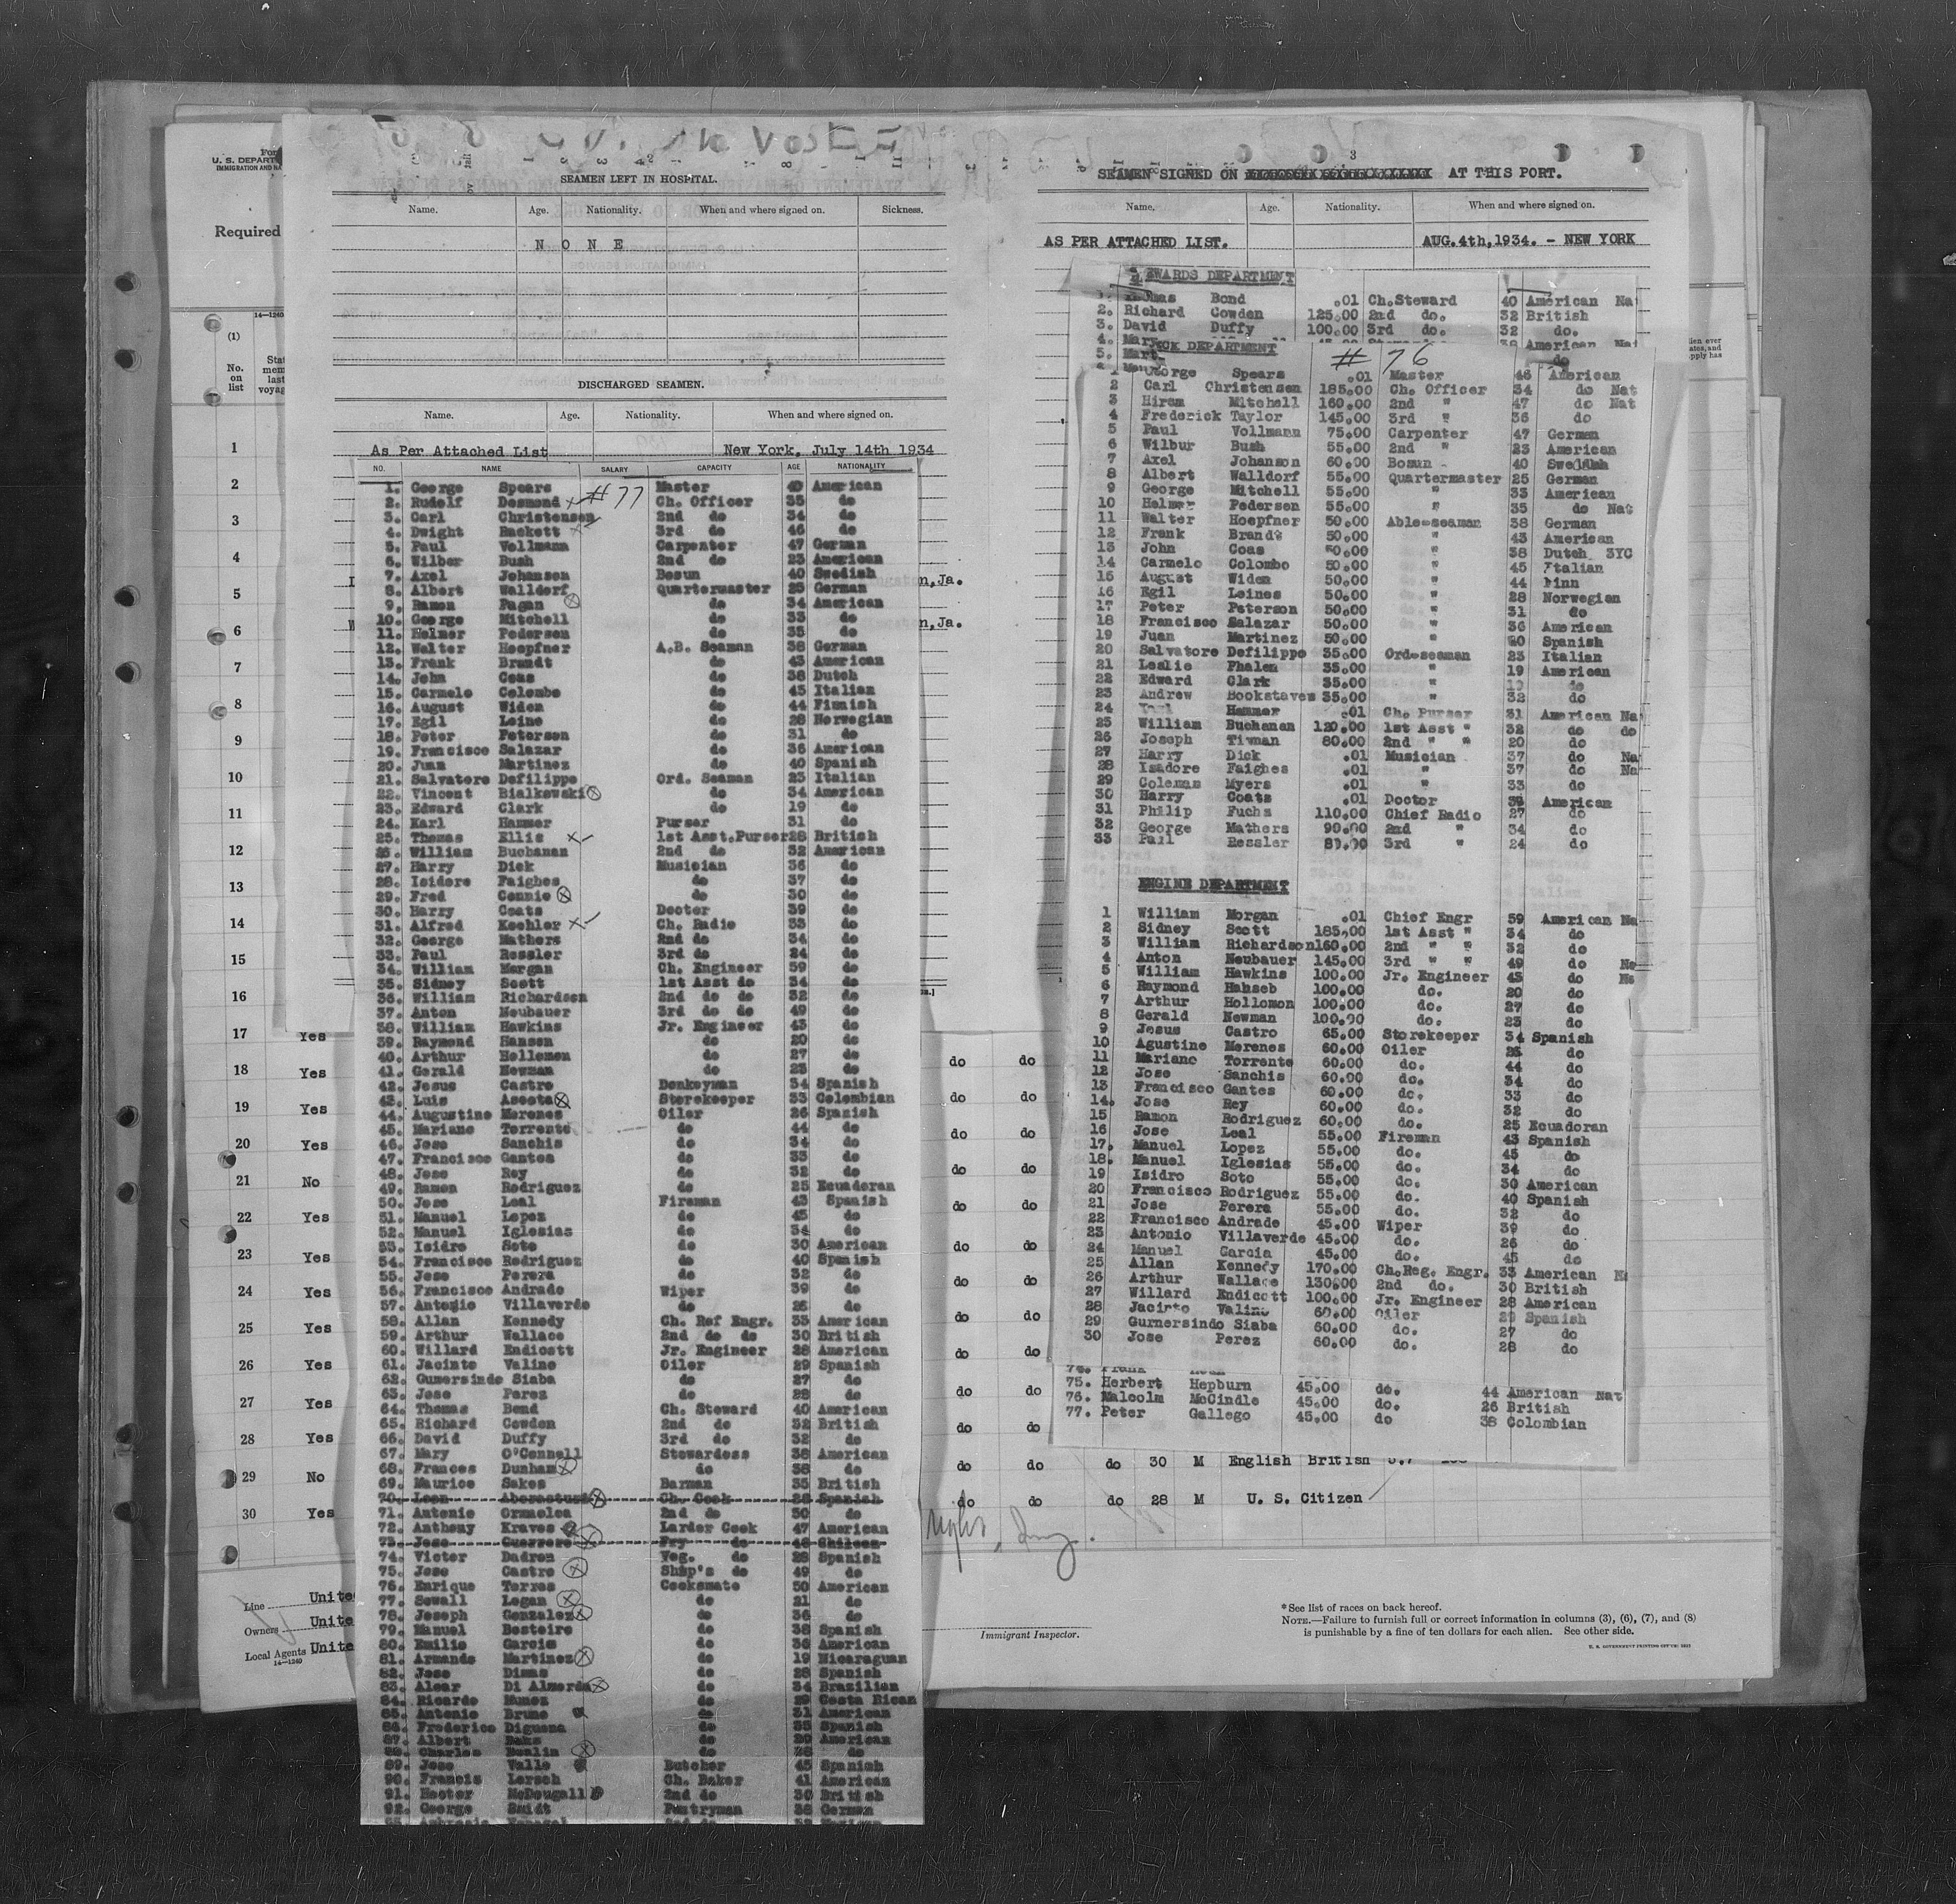 SEAMEN LEFT IN HOSPITAL.
Name. Age. Nationality. When and where signed on. Sickness.
N O N E
DISCHARGED SEAMEN.
Name. Age. Nationality. When and where signed on.
As Per Attached List New York, July 14th 1934
NO. NAME SALARY CAPACITY AGE NATIONALITY
# 77
1. George Spears Master 40 American
2. Rudolf Desmond Ch. Officer 35 do
3. Carl Christensen 2nd do 34 do
4. Dwight Rackett 3rd do 46 do
5. Paul Vollmann Carpenter 47 German
6. Wilber Bush 2nd do 23 American
7. Axel Johansen Bosun 40 Swedish
8. Albert Walldorf Quartermaster 25 German
9. Ramon Pagan do 34 American
10. George Mitchell do 33 do
11. Helmer Pedersen do 35 do
12. Walter Hoepfner A.B. Seaman 38 German
13. Frank Brandt do 43 American
14. John Coas do 38 Dutch
15. Carmelo Colombo do 45 Italian
16. August Widen do 44 Finnish
17. Egil Leine do 28 Norwegian
18. Peter Petersen do 31 do
19. Francisco Salazar do 36 American
20. Juan Martinez do 40 Spanish
21. Salvatore Defilippo Ord. Seaman 23 Italian
22. Vincent Bialkowski do 34 American
23. Edward Clark do 19 do
24. Karl Hammer Purser 31 do
25. Thomas Ellis 1st Asst.Purser 28 British
26. William Buchanan 2nd do 32 American
27. Harry Dick Musician 36 do
28. Isidore Faighes do 37 do
29. Fred Connie do 30 do
30. Harry Coats Doctor 39 do
31. Alfred Koehler Ch. Radio 33 do
32. George Mathers 2nd do 34 do
33. Paul Ressler 3rd do 24 do
34. William Morgan Ch. Engineer 59 do
35. Sidney Scott 1st Asst do 34 do
36. William Richardson 2nd do do 32 do
37. Anton Neubauer 3rd do do 49 do
38. William Hawkins Jr. Engineer 43 do
39. Raymond Hansen do 20 do
40. Arthur Hollomon do 27 do
41. Gerald Newman do 23 do
42. Jesus Castro Donkeyman 34 Spanish
43. Luis Acosta Storekeeper 33 Colombian
44. Augustine Morenes Oiler 26 Spanish
45. Mariano Torrente do 44 do
46. Jose Sanchis do 34 do
47. Francisco Gantes do 33 do
48. Jose Rey do 32 do
49. Ramon Rodriguez do 25 Ecuadoran
50. Jose Leal Fireman 43 Spanish
51. Manuel Lopez do 45 do
52. Manuel Iglesias do 34 do
53. Isidro Soto do 30 American
54. Francisco Rodriguez do 40 Spanish
55. Jose Perera do 32 do
56. Francisco Andrade Wiper 39 do
57. Antonio Villaverde do 26 do
58. Allan Kennedy Ch. Ref Engr. 33 American
59. Arthur Wallace 2nd do do 30 British
60. Willard Endicott Jr. Engineer 28 American
61. Jacinto Valino Oiler 29 Spanish
62. Gumersindo Siaba do 27 do
63. Jose Perez do 28 do
64. Thomas Bond Ch. Steward 40 American
65. Richard Cowden 2nd do 32 British
66. David Duffy 3rd do 32 do
67. Mary O'Connell Stewardess 38 American
68. Frances Dunham do 38 do
69. Maurice Sakes Barman 35 British
70. Leon Ch. Cook 28 Spanish
71. Antonio Ormolea 2nd do 50 do
72. Anthony Kraves Larder Cook 47 American
73. Jose Guerrero Fry do Chilean
74. Victor Dadron Veg. do 28 Spanish
75. Jose Castro Ship's do 49 do
76. Enrique Torres Cooksmate 50 American
77. Sewall Logan do 21 do
78. Joseph Gonzalez do 36 do
79. Manuel Besteiro do 38 Spanish
80. Emilio Garcia do 36 American
81. Armando Martinez do 19 Nicaraguan
82. Jose Dimas do 28 Spanish
83. Alcar Di Almerda do 34 Brazilian
84. Ricardo Munoz do 29 Costa Rican
85. Antonio Bruno do 31 American
86. Frederico Diguena do 35 Spanish
87. Albert do 20 American
88. Charles do 28 do
89. Jose Valle Butcher 45 Spanish
90. Francis Lersch Ch. Baker 41 American
91. Hector McDougall 2nd do 30 British
92. George Smidt Pantryman 38 German
3
SEAMEN SIGNED ON AT THIS PORT.
Name. Age. Nationality. When and where signed on.
AS PER ATTACHED LIST. AUG.4th,1934. - NEW YORK
EWARDS DEPARTMENT
1. Thomas Bond .01 Ch.Steward 40 American Na
2. Richard Cowden 125.00 2nd do. 32 British
3. David Duffy 100.00 3rd do. 32 do.
4. Mary 38 American Na
5. Mart
CK DEPARTMENT # 76
1 George Spears .01 Master 46 American
2 Carl Christensen 185.00 Ch. Officer 34 do Nat
3 Hiram Mitchell 160.00 2nd " 47 do Nat
4 Frederick Taylor 145.00 3rd " 36 do
5 Paul Vollmann 75.00 Carpenter 47 German
6 Wilbur Bush 55.00 2nd " 23 American
7 Axel Johanson 60.00 Bosun 40 Swedish
8 Albert Walldorf 55.00 Quartermaster 25 German
9 George Mitchell 55.00 " 33 American
10 Helmer Pedersen 55.00 " 35 do Nat
11 Walter Hoepfner 50.00 Able-seaman 38 German
12 Frank Brandt 50.00 " 43 American
13 John Coas 50.00 " 38 Dutch 3YC
14 Carmelo Colombo 50.00 " 45 Italian
15 August Widen 50.00 " 44 Finn
16 Egil Leines 50.00 " 28 Norwegian
17 Peter Peterson 50.00 " 31 do
18 Francisco Salazar 50.00 " 36 American
19 Juan Martinez 50.00 " 40 Spanish
20 Salvatore Defilippo 35.00 Ord-seaman 23 Italian
21 Leslie Phalen 35.00 " 19 American
22 Edward Clark 35.00 " 19 do
23 Andrew Bookstaven 35.00 " 32 do
24 Hammer .01 Ch. Purser 31 American Na
25 William Buchanan 120.00 1st Asst " 32 do do
26 Joseph Tivnan 80.00 2nd " " 20 do
27 Harry Dick .01 Musician 37 do Na
28 Isadore Faighes .01 " 37 do Na
29 Coleman Myers .01 " 33 do
30 Harry Coats .01 Doctor 39 American
31 Philip Fuchs 110.00 Chief Radio 27 do
32 George Mathers 90.00 2nd " 34 do
33 Paul Ressler 80.00 3rd " 24 do
ENGINE DEPARTMENT
1 William Morgan .01 Chief Engr 59 American Na
2 Sidney Scott 185.00 1st Asst " 34 do
3 William Richardson 160.00 2nd " " 32 do
4 Anton Neubauer 145.00 3rd " " 49 do Na
5 William Hawkins 100.00 Jr. Engineer 43 do Na
6 Raymond Hahseb 100.00 do. 20 do
7 Arthur Hollomon 100.00 do. 27 do
8 Gerald Newman 100.00 do. 23 do
9 Jesus Castro 65.00 Storekeeper 34 Spanish
10 Agustine Morenes 60.00 Oiler 26 do
11 Mariano Torrente 60.00 do. 44 do
12 Jose Sanchis 60.00 do. 34 do
13 Francisco Gantes 60.00 do. 33 do
14. Jose Rey 60.00 do. 32 do
15 Ramon Rodriguez 60.00 do. 25 Ecuadoran
16 Jose Leal 55.00 Fireman 43 Spanish
17. Manuel Lopez 55.00 do. 45 do
18. Manuel Iglesias 55.00 do. 34 do
19 Isidro Soto 55.00 do. 30 American
20 Francisco Rodriguez 55.00 do. 40 Spanish
21 Jose Perera 55.00 do. 32 do
22 Francisco Andrade 45.00 Wiper 39 do
23 Antonio Villaverde 45.00 do. 26 do
24 Manuel Garcia 45.00 do. 45 do
25 Allan Kennedy 170.00 Ch.Reg. Engr. 33 American N
26 Arthur Wallace 130.00 2nd do. 30 British
27 Willard Endicott 100.00 Jr. Engineer 28 American
28 Jacinto Valino 60.00 Oiler 29 Spanish
29 Gumersindo Siaba 60.00 do. 27 do
30 Jose Perez 60.00 do. 28 do
74. Frank
75. Herbert Hepburn 45.00 do. 44 American Nat
76. Malcolm McCindle 45.00 do. 26 British
77. Peter Gallego 45.00 do 38 Colombian
U. S. DEPART
IMMIGRATION AND NA
Required
14—1240
(1)
No. on list
Stat
mem
last
voyag
1
2
3
4
5 n,Ja.
6 n,Ja.
7
8
9
10
11
12
13
14
15
16
17 Yes
18 Yes do do
19 Yes do do
20 Yes do do
21 No do do
22 Yes do do
23 Yes do do
24 Yes do do
25 Yes do do
26 Yes do do
27 Yes do do
28 Yes do do
29 No do do do 30 M English British
30 Yes do do do 28 M U. S. Citizen
Line Unite
Owners Unite
Local Agents United
14—1240
Immigrant Inspector.
*See list of races on back hereof.
NOTE.—Failure to furnish full or correct information in columns (3), (6), (7), and (8)
is punishable by a fine of ten dollars for each alien. See other side.